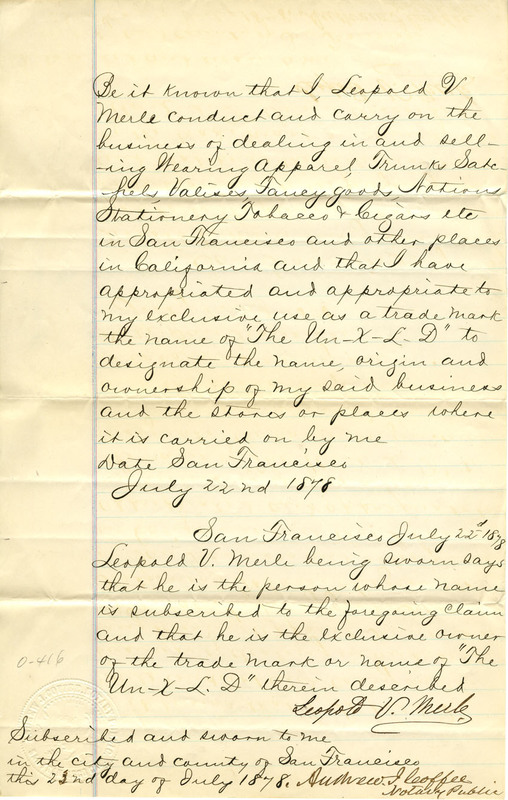 Be it known that I, Leopold V
Merle conduct and carry on the
business of dealing in and sell-
-ing Wearing Apparel, Trunks Satc-
-hels Valises, Fancy goods, Notions
Stationery Tobacco & Cigars etc
in San Francisco and other places
in California and that I have
appropriated and appropriate to
my exclusive use as a trade mark
the name of "The Un-X-L-D" to
designate the name, origin and
ownership of my said business
and the stores or places where
it is carried on by me
Date San Francisco
July 22nd 1878
San Francisco July 22d 1878
Leopold V. Merle being sworn says
that he is the person whose name
is subscribed to the foregoing claim
and that he is the exclusive owner
of the trade mark or name of "The
Un-X-L. D" therein described
Leopold V. Merle
0-416
Subscribed and sworn to me
in the city and county of San Francisco
this 22nd day of July 1878. Andrew J
Notary Public